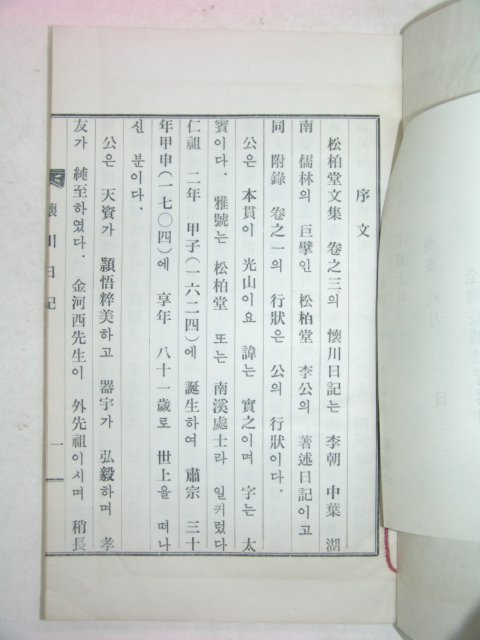 序文
松柏堂文集 卷之三의 懷川日記는 李朝 中葉 湖
南 儒林의 巨擘인 松柏堂 李公의 著述日記이고
同 附錄 卷之一의 行狀은 公의 行狀이다.
公은 本貫이 光山이요 諱는 實之이며 字는 太
賓이다. 雅號는 松柏堂 또는 南溪處士라 일커렀다
仁祖 二年 甲子(一六二四)에 誕生하여 肅宗 三十
年甲申(一七〇四)에 享年 八十一歲로 世上을 떠나
신 분이다.
公은 天資가 穎悟粹美하고 器宇가 弘毅하며 孝
友가 純至하였다. 金河西先生이 外先祖이시며 稍長
懷川日記
一